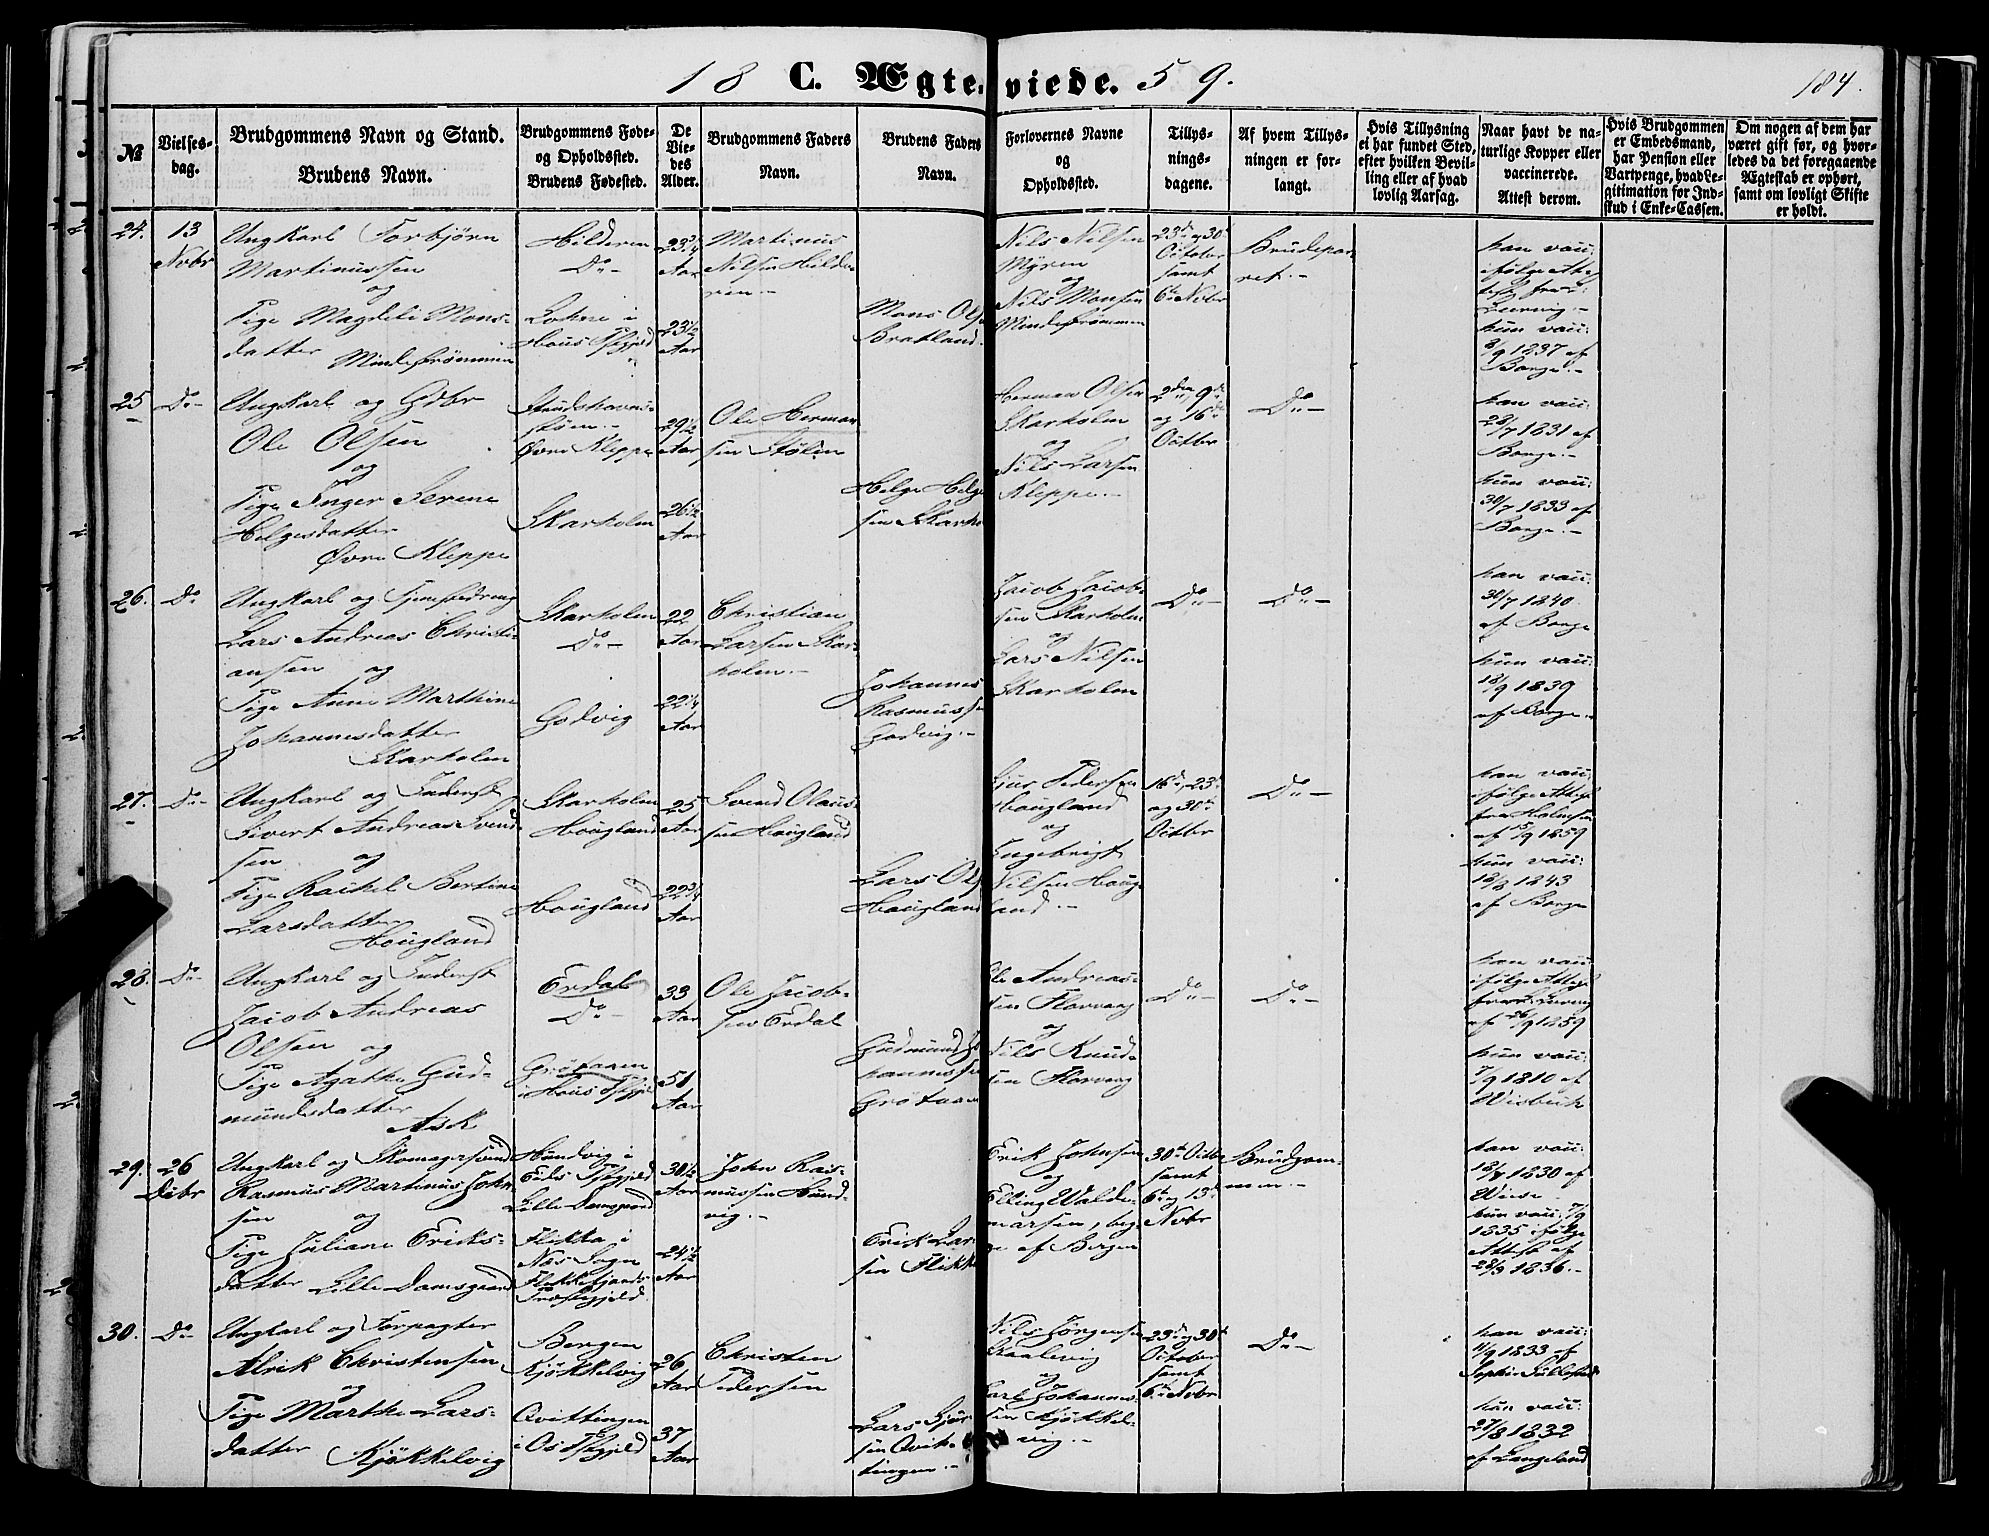 18 C. Ægteviede. 59.
184.
№
Vielses-
dag.
Brudgommens Navn og Stand.
Brudens Navn.
Brudgommens Føde-
og Opholdssted.
Brudens Fødested.
De
Vie-
des
Alder.
Brudgommens Faders
Navn.
Brudens Faders
Navn.
Forlovernes Navne
og
Opholdssted.
Tillys-
nings-
dagene.
Af hvem Tillys-
ningen er for-
langt.
Hvis Tillysning
ei har fundet Sted,
efter hvilken Bevil-
ling eller af hvad
lovlig Aarsag.
Naar havt de na-
turlige Kopper eller
vaccinerede.
Attest derom.
Hvis Brudgommen
er Embedsmand,
har Pension eller
Vartpenge, hvad Le-
gitimation for Ind-
skud i Enke-Cassen.
Om nogen af dem har
været gift for, og hvor-
ledes da det foregaaende
Ægteskab er ophørt,
samt om lovligt Skifte
er holdt.
24.
13
Novbr
Ungkarl Torbjörn
Martinussen
og
Pige Magdeli Mons-
datter Mindeströmmen
Hilderen
Do-
Lohne i
Hous Pstgjeld
23¾
Aar
23½
Aar
Martinus
Nilsen Hilde-
ren.-
Mons Ols
Bratland.
Nils Nilsen
Myren
og
Nils Monsen
Mindeströmmen
23de og 30te
October
samt
6te Novbr
Brudepar-
ret.-
han vacc:
ifölge Atte
hun vacc:
8/9 1837 af
Borge.-
25
Do-
Ungkarl og Gdbr
Ole Olsen
og
Pige Inger Serene
Helgesdatter
Øvre Kleppe
Øvre Kleppe
Skarholm
29½
Aar
26½
Aar
Ole Herman-
sen Stölen
Helge Helge
sen Skarho
Herman Olsen
Skarholm
og
Nils Larsen
Kleppe.-
2den, 9de
og 16de
Octbr
Do-
han vacc:
28/7 1831 af
Borge.-
hun vacc:
30/7 1833 af
Borge.-
26.
Do
Ungkarl og Tjenestedreng
Lars Andreas Christi-
ansen og
Pige Anne Marthine
Johannesdatter
Skarholm
Skarholm
Do-
Godvig
22
Aar
22¼
Aar
Christian
Larsen Skar-
holm.-
Johannes
Rasmusse
Godvig.-
Jacob Jacob-
sen Skarholm
og
Lars Nilsen
Skarholm
Do-
Do-
han vacc:
30/7 1840
af Borge
hun vacc:
18/9 1839
af Borge.
27.
Do-
Ungkarl og Inderst
Sivert Andreas Svend-
sen og
Pige Rachel Bertine
Larsdatter
Hougland
Skarholm
Hougland
Hougland
25
Aar
22¾
Aar
Svend Olaus-
sen Hougland
Lars Ols
Hougland
Sjur Pedersen
Hougland
og
Engebrigt
Nilsen Houg-
land.-
16de, 23de
og 30te
Octbr
Do-
han vacc:
ifölge Attest
fra Holmsen
af 15/9 1859
hun vacc:
18/8 1843
af Borge
28.
Do-
Ungkarl og Inderst
Jacob Andreas
Olsen og
Pige Agathe Gud-
mundsdatter
Ask
Erdal
Do-
Grötaaen
i Hous Pstgjd
33
Aar
51
Aar
Ole Jacob-
sen Erdal
Gudmund Jo
hannesse
Grötaaen
Ole Andreas-
sen Florvaag
og
Nils Knud-
sen Florvaag
Do-
Do-
han vacc:
ifölge Attest
af 26/9 1859
hun vacc:
7/9 1810 af
Wisbeck
29.
26
Dcbr
Ungkarl og Skomagersvend
Rasmus Martinus John-
sen og
Pige Juliane Eriks-
datter Lille Damsgaard
Hundvig i
Eids Pstgjeld
Lille Damsgaard
Flikka i
Nes Sogn
Flekkefjords
Præstegjeld.
30½
Aar
24½
Aar
John Ras-
mussen Hund-
vig.-
Erik Lar-
sen Flikke
Erik Johnsen
og
Elling Walde-
marsen, beg-
ge af Bergen
30te Octbr
samt
6te og 13de
Novbr
Brudgom-
men.-
han vacc:
18/7 1830 af
Wiese
hun vacc: 7/9
1835 ifölge
Attest af
28/9 1836.-
30.
Do-
Ungkarl og Forpagter
Alrik Christensen
og
Pige Marthe Lars-
datter Kjøkkelvig
Bergen
Kjøkkelvig
Qvittingen
i Os Pstgjeld
26
Aar
37
Aar
Christen
Pedersen
Lars Sjur-
sen Qvit-
tingen.-
Nils Jörgensen
og
Carl Johannes-
sen Kjøkkel-
vig.-
23de og 30te
October
samt
6te Novbr
Do-
han vacc:
11/9 1833 af
hun vacc:
27/8 1832
af Langeland